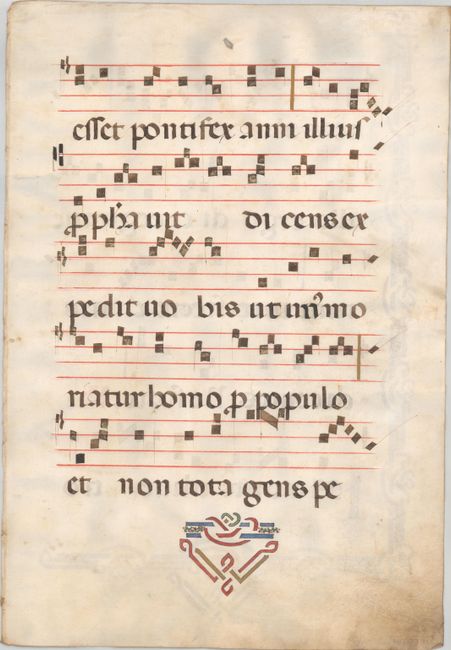 esset pontifex anni illius
ꝓpħa uit di cens ex
pedit uo bis ut un᷒ mo
riatur homo ꝓ populo
et non tota gens pe